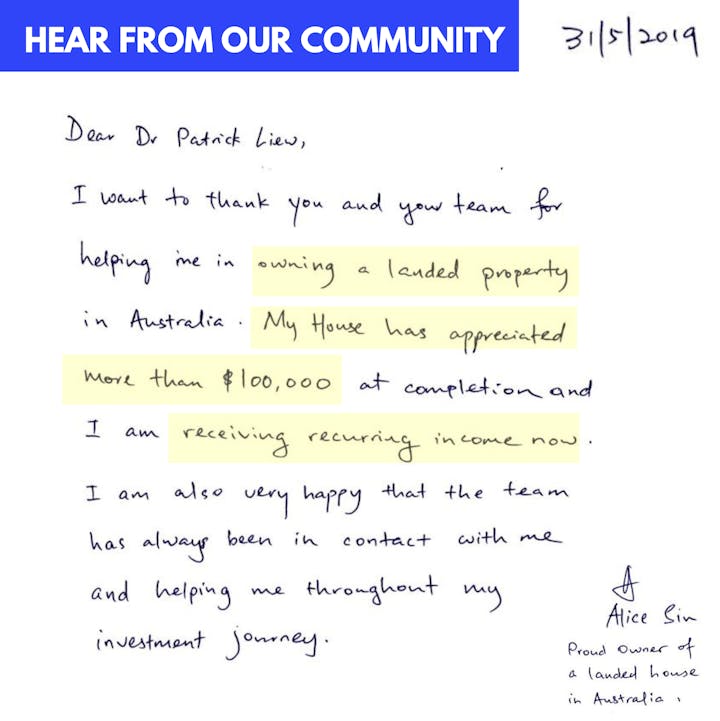 HEAR FROM OUR COMMUNITY
31/5/2019
Dear Dr Patrick Liew,
I want to thank you and your team for
helping me in owning a landed property
in Australia. My House has appreciated
more than $100,000 at completion and
I am receiving recurring income now.
I am also very happy that the team
has always been in contact with me
and helping me throughout my
investment journey.
Alice Sin
Proud Owner of
a landed house
in Australia.